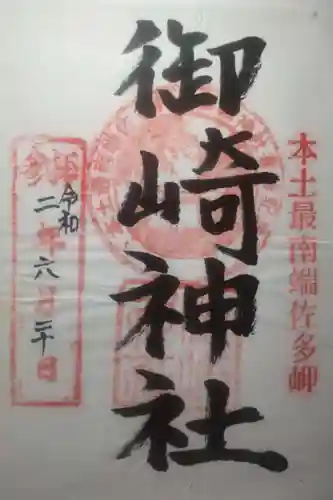 本土最南端佐多岬
御崎神社
参拝
令和二年六月三十日